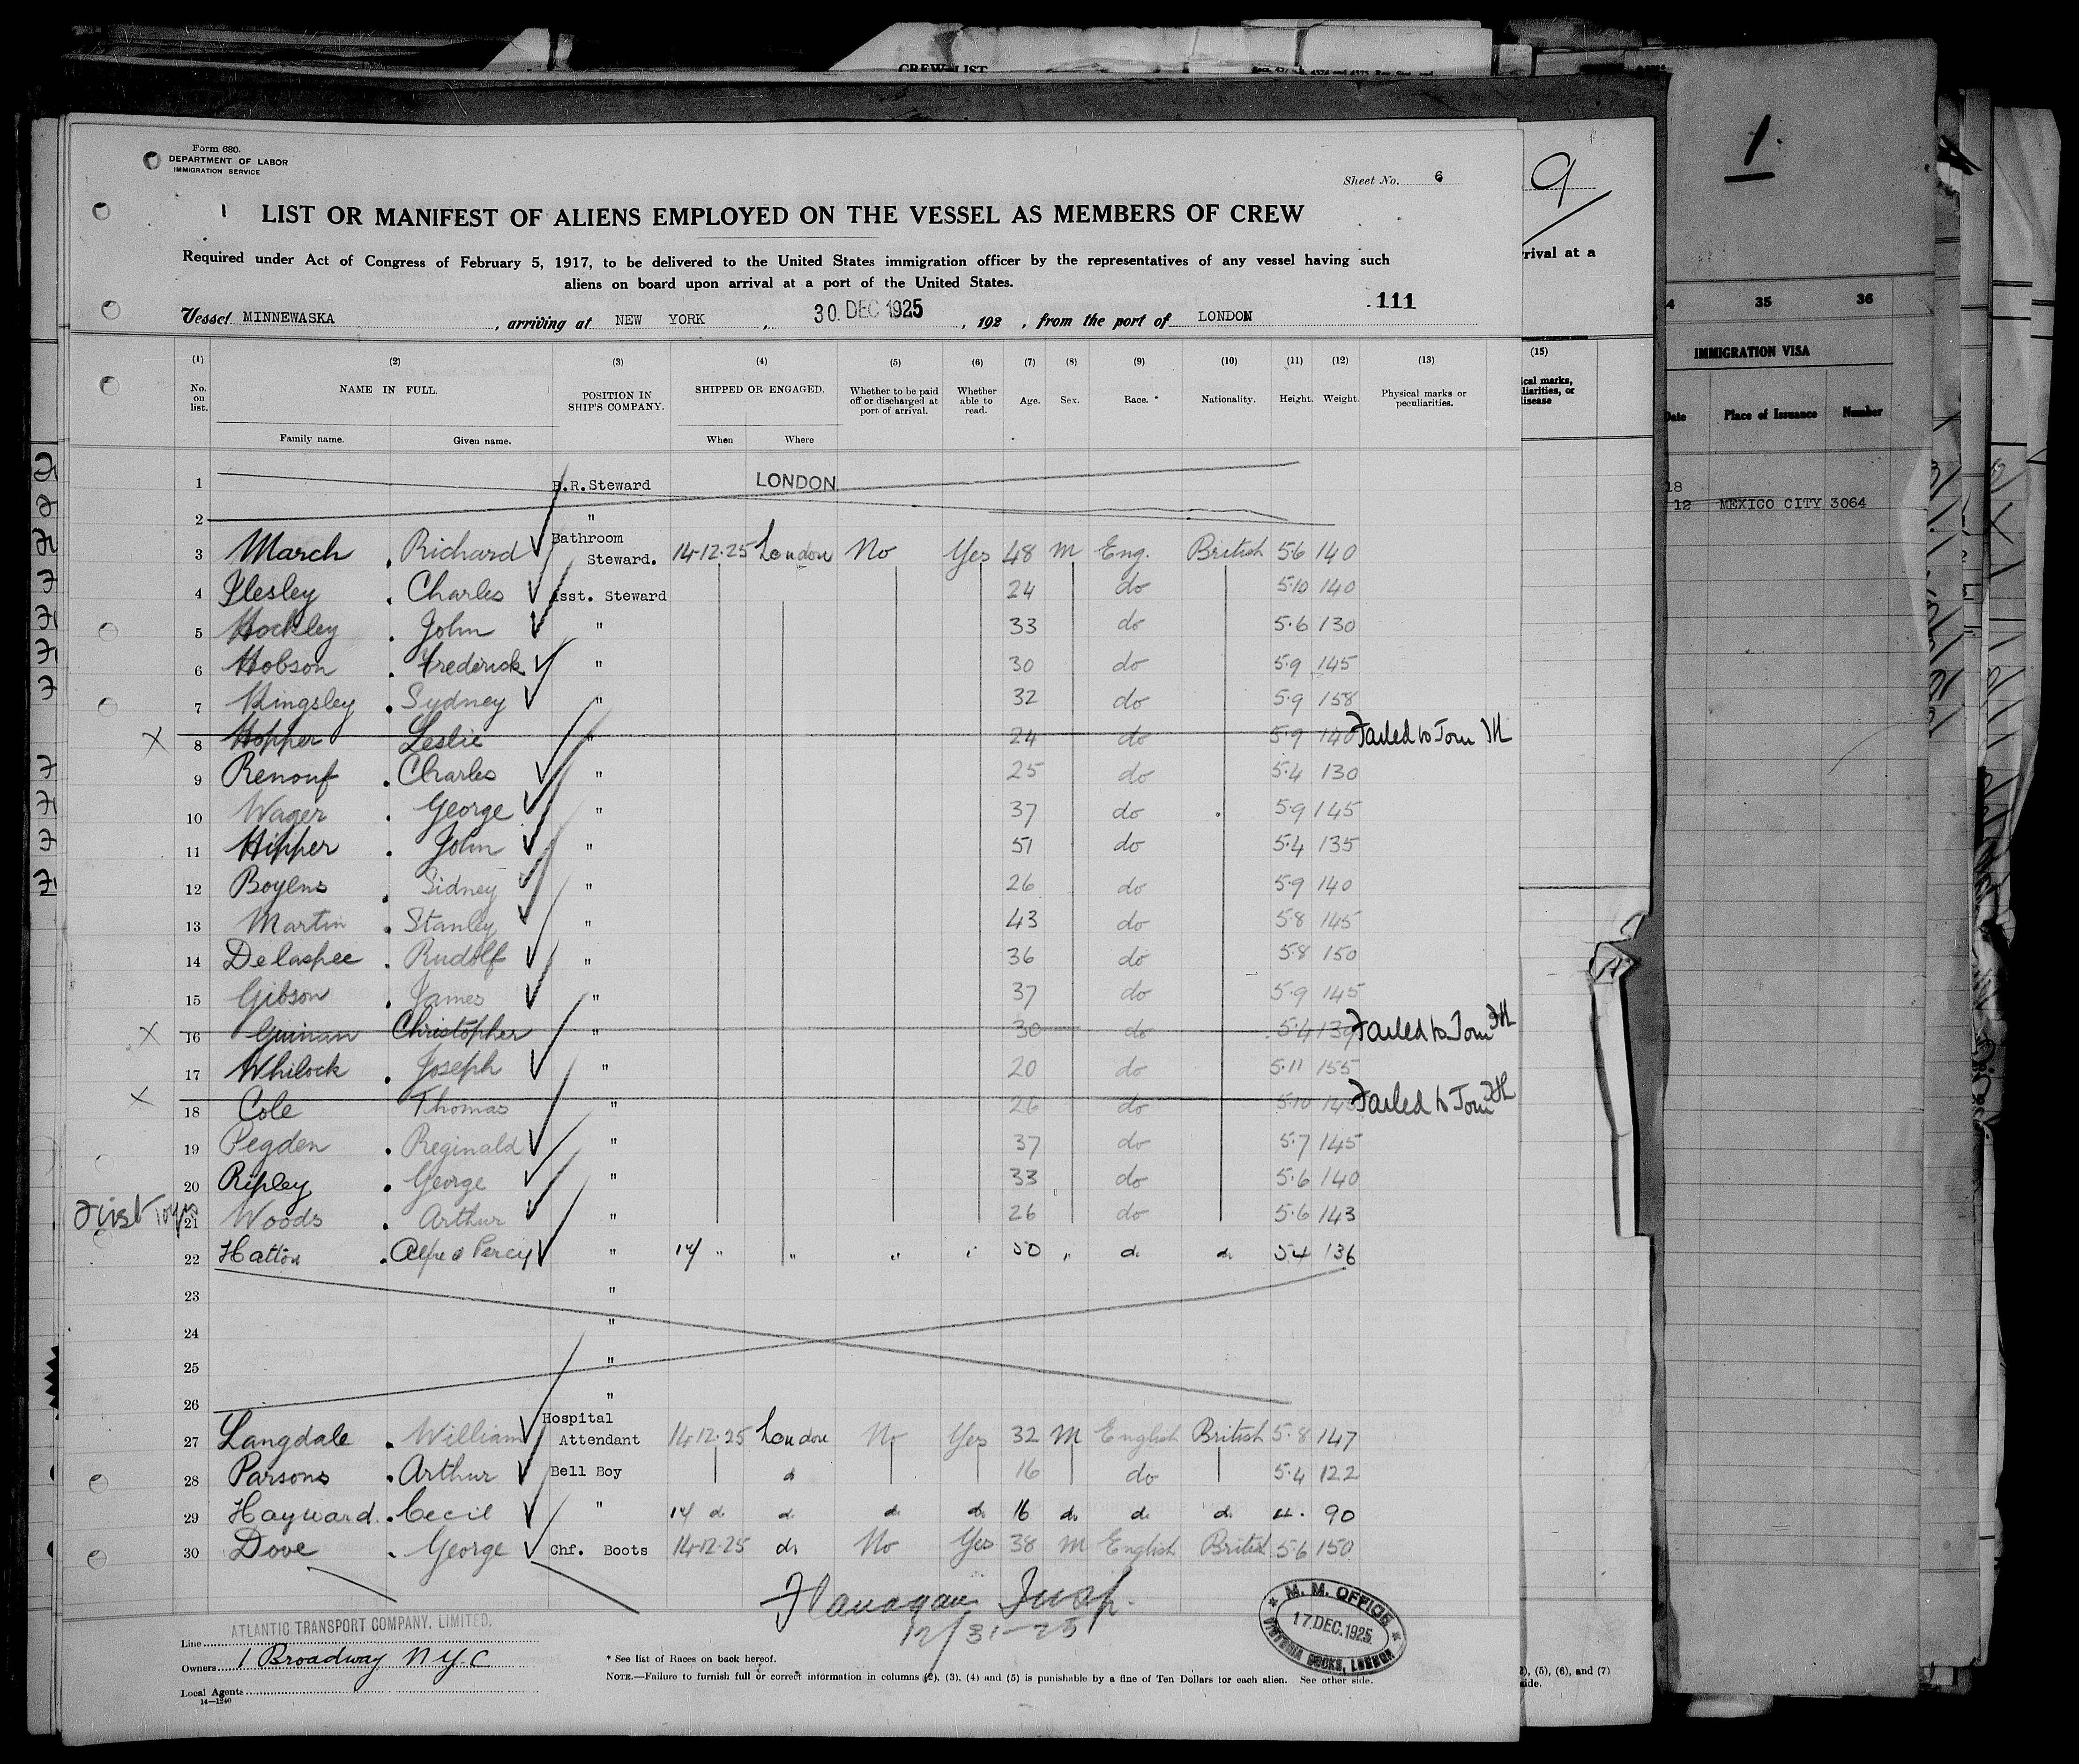 CREW LIST
Form 680.
DEPARTMENT OF LABOR
IMMIGRATION SERVICE
Sheet No. 6
1 LIST OR MANIFEST OF ALIENS EMPLOYED ON THE VESSEL AS MEMBERS OF CREW
Required under Act of Congress of February 5, 1917, to be delivered to the United States immigration officer by the representatives of any vessel having such
aliens on board upon arrival at a port of the United States.
111
Vessel MINNEWASKA, arriving at NEW YORK, 30. DEC 1925, 192 , from the port of LONDON
(1) (2) (3) (4) (5) (6) (7) (8) (9) (10) (11) (12) (13)
No. on list. NAME IN FULL. POSITION IN SHIP'S COMPANY. SHIPPED OR ENGAGED. Whether to be paid off or discharged at port of arrival. Whether able to read. Age. Sex. Race.* Nationality. Height. Weight. Physical marks or peculiarities.
Family name. Given name. When Where
1 B.R. Steward LONDON
2 "
3 March Richard Bathroom Steward. 14-12-25 London No Yes 48 M Eng. British 56 140
4 Ilesley Charles Asst. Steward 24 do 5·10 140
5 Hockley John " 33 do 5·6 130
6 Hobson Frederick " 30 do 5·9 145
7 Kingsley Sydney " 32 do 5·9 158
X 8 Hopper Leslie " 24 do 5·9 140 Failed to Join
9 Renouf Charles " 25 do 5·4 130
10 Wager George " 37 do 5·9 145
11 Hipper John " 51 do 5·4 135
12 Boyens Sidney " 26 do 5·9 140
13 Martin Stanley " 43 do 5·8 145
14 Delaspee Rudolf " 36 do 5·8 150
15 Gibson James " 37 do 5·9 145
X 16 Guinan Christopher " 30 do 5·4 130 Failed to Join
17 Whilock Joseph " 20 do 5·11 155
X 18 Cole Thomas " 26 do 5·10 145 Failed to Join
19 Pegden Reginald " 37 do 5·7 145
20 Ripley George " 33 do 5·6 140
First 21 Woods Arthur " 26 do 5·6 143
22 Hatton Alfred Percy " 14 " " " " 50 " do do 54 136
23 "
24 "
25 "
26 "
27 Langdale William Hospital Attendant 14-12-25 London No Yes 32 M English British 5·8 147
28 Parsons Arthur Bell Boy do 16 do 5·4 122
29 Hayward Cecil " 14 do do do do 16 do do do 4· 90
30 Dove George Chf. Boots 14-12-25 do No Yes 38 M English British 5·6 150
Flanagan Insp.
12/31-25
M. M. OFFICE
17 DEC. 1925
VICTORIA DOCKS, LONDON
Line ATLANTIC TRANSPORT COMPANY, LIMITED.
Owners 1 Broadway N.Y.C
Local Agents
14—1240
* See list of Races on back hereof.
NOTE.—Failure to furnish full or correct information in columns (2), (3), (4) and (5) is punishable by a fine of Ten Dollars for each alien. See other side.
9
rival at a
(15)
ical marks,
liarities, or
disease
2), (5), (6), and (7)
side.
1
4 35 36
IMMIGRATION VISA
Date Place of Issuance Number
18
12 MEXICO CITY 3064